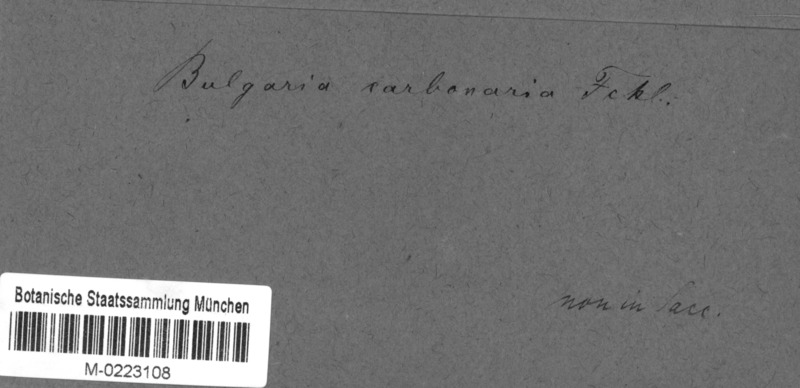 Bulgaria carbonaria Fckl.
non in Sacc.
Botanische Staatssammlung München
M-0223108